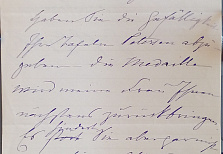 Haben Sie die Gefälligk
Ihr Tafeln Petersen abzu
geben die Medaille
wird meine Frau Ihnen
nächstens zurückbringen
Es Sie aber gar